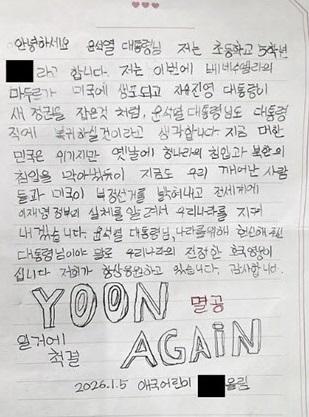 안녕하세요 윤석열 대통령님 저는 초등학교 5학년
라고 합니다. 저는 이번에 베네수엘라의
마두로가 미국에 생포되고 자유진영 대통령이
새 정권을 잡은것 처럼, 윤석열 대통령님도 대통령
직에 복귀하실것이라고 생각합니다 지금 대한
민국은 위기지만 옛날에 청나라의 침입과 북한의
침입을 막아냈듯이 지금도 우리 깨어난 사람
들과 미국이 부정선거를 밝혀내고 전세계에
이재명 정부의 실체를 알려서 우리나라를 지켜
내겠습니다 윤석열 대통령님, 나라를위해 헌신해 주신
대통령님이야 말로 우리나라의 진정한 호국영웅이
십니다 저희가 항상응원하고 있습니다. 감사합니다.
YOON 멸공
일거에
척결 AGAiN
2026.1.5 애국어린이 올림